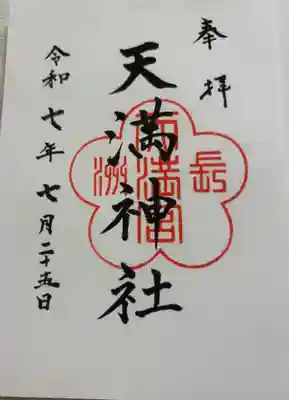 奉拝
天満神社
令和七年七月二十五日
長
天満宮
洲